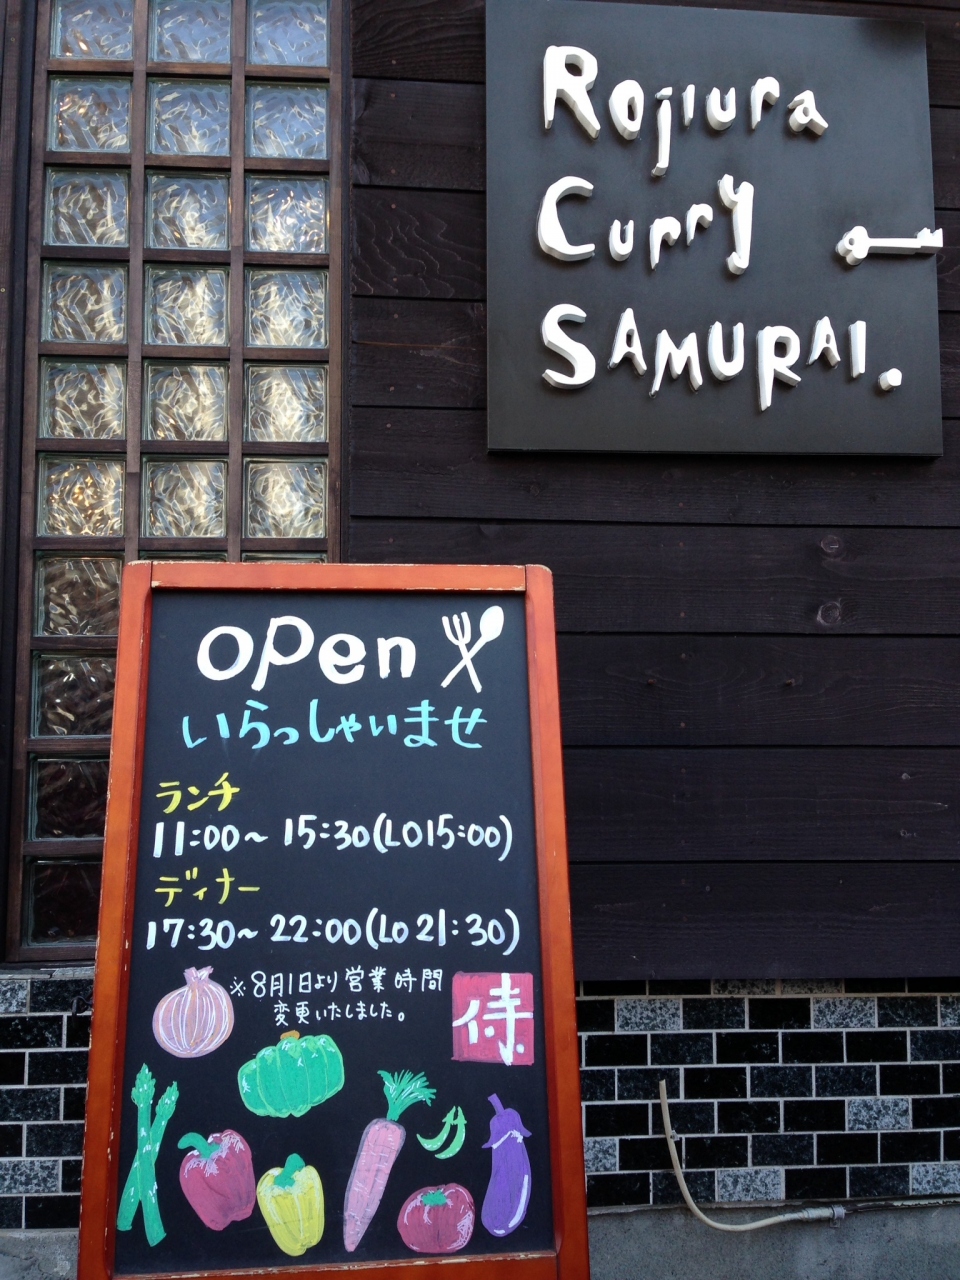 Rojiura
Curry
SAMURAI.
open
いらっしゃいませ
ランチ
11:00~ 15:30(LO15:00)
ディナー
17:30~ 22:00(Lo 21:30)
※8月1日より営業時間
変更いたしました。
侍